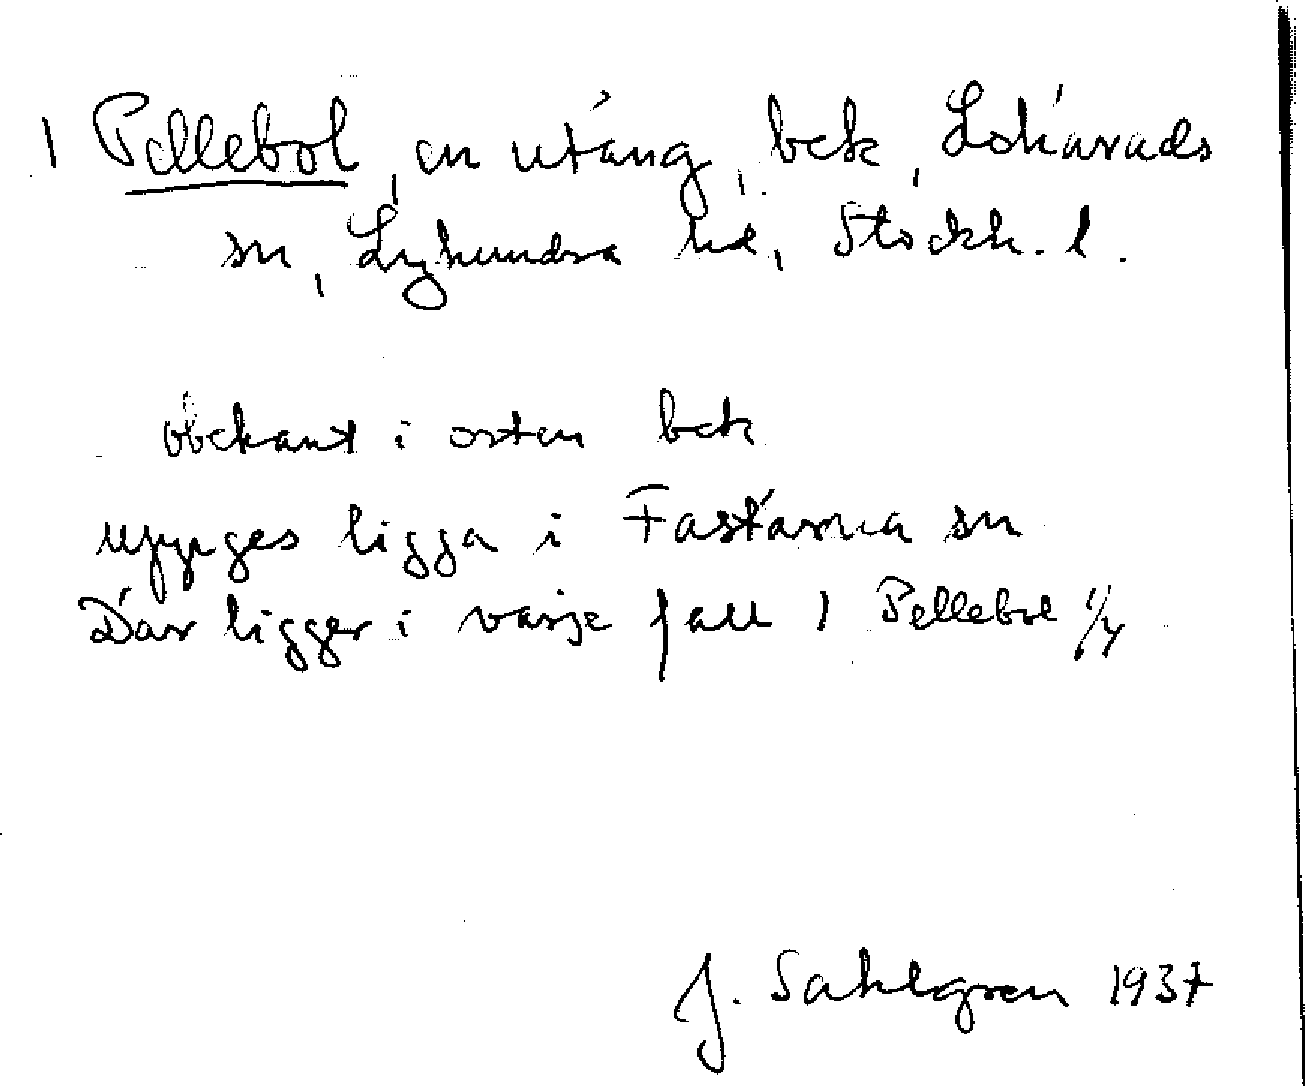 1 Pellebol, en utäng, bek, Lohärads
sn, Lyhundra hd, Stockh. l.
obekant i orten bek
uppges ligga i Fasterna sn
Där ligger i varje fall 1 Pellebol
J. Sahlgren 1937